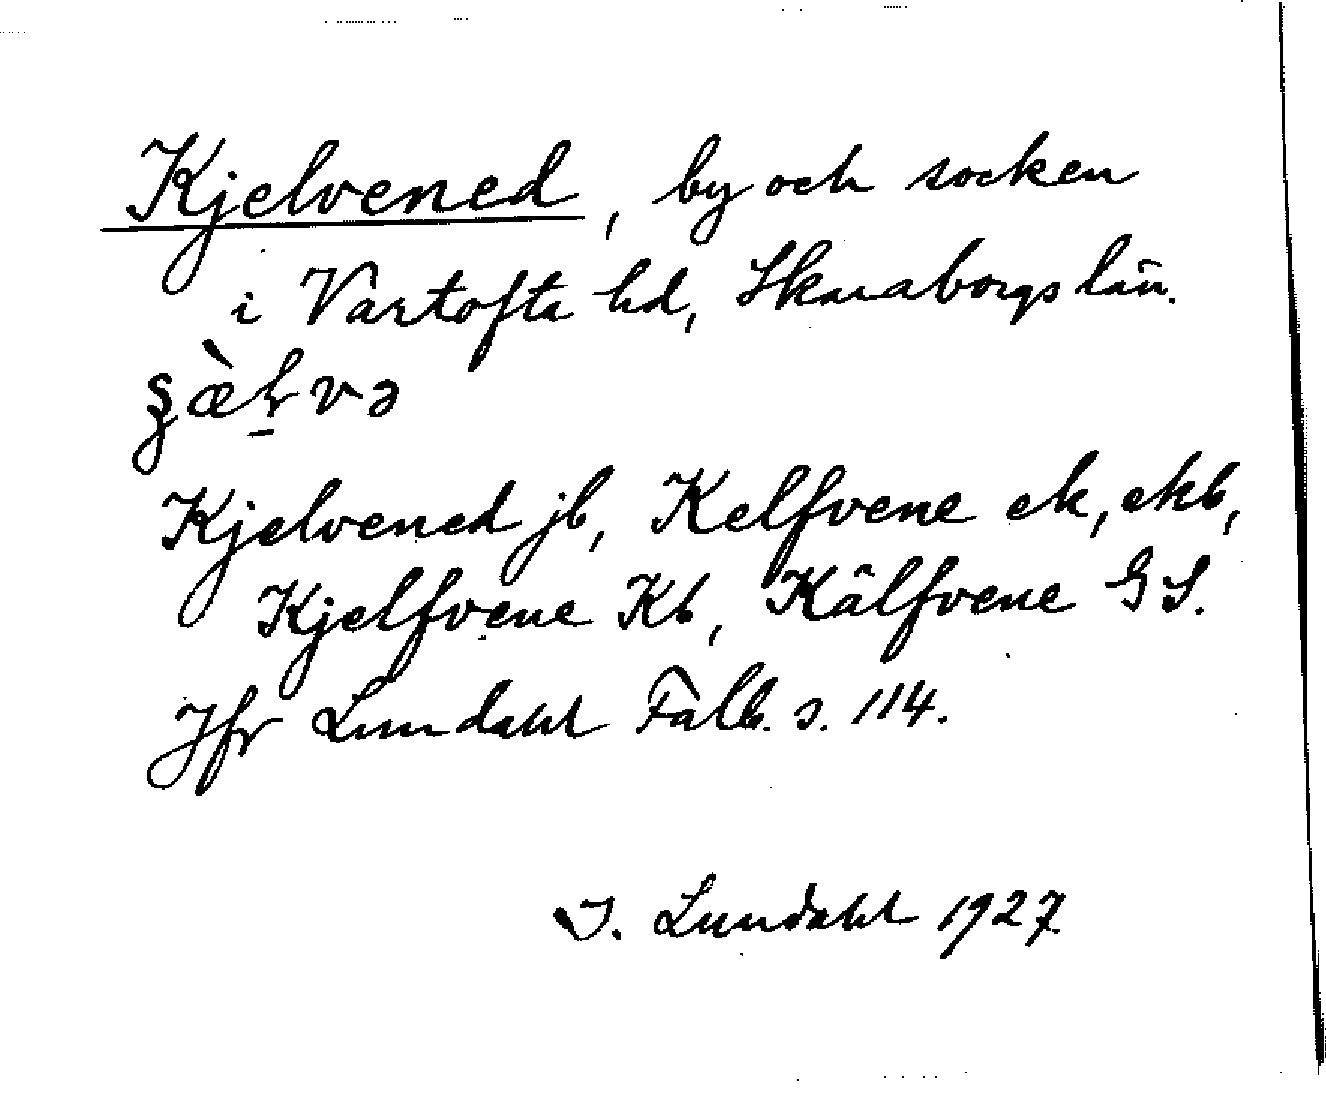 Kjelvened, by och socken
i Vartofta hd, Skaraborgs län.
Kjelvened jb, Kelfvene ek, ekb,
Kjelfvene Kb, Kälfvene GS.
Jfr Lundahl Falb. s. 114.
I. Lundahl 1927